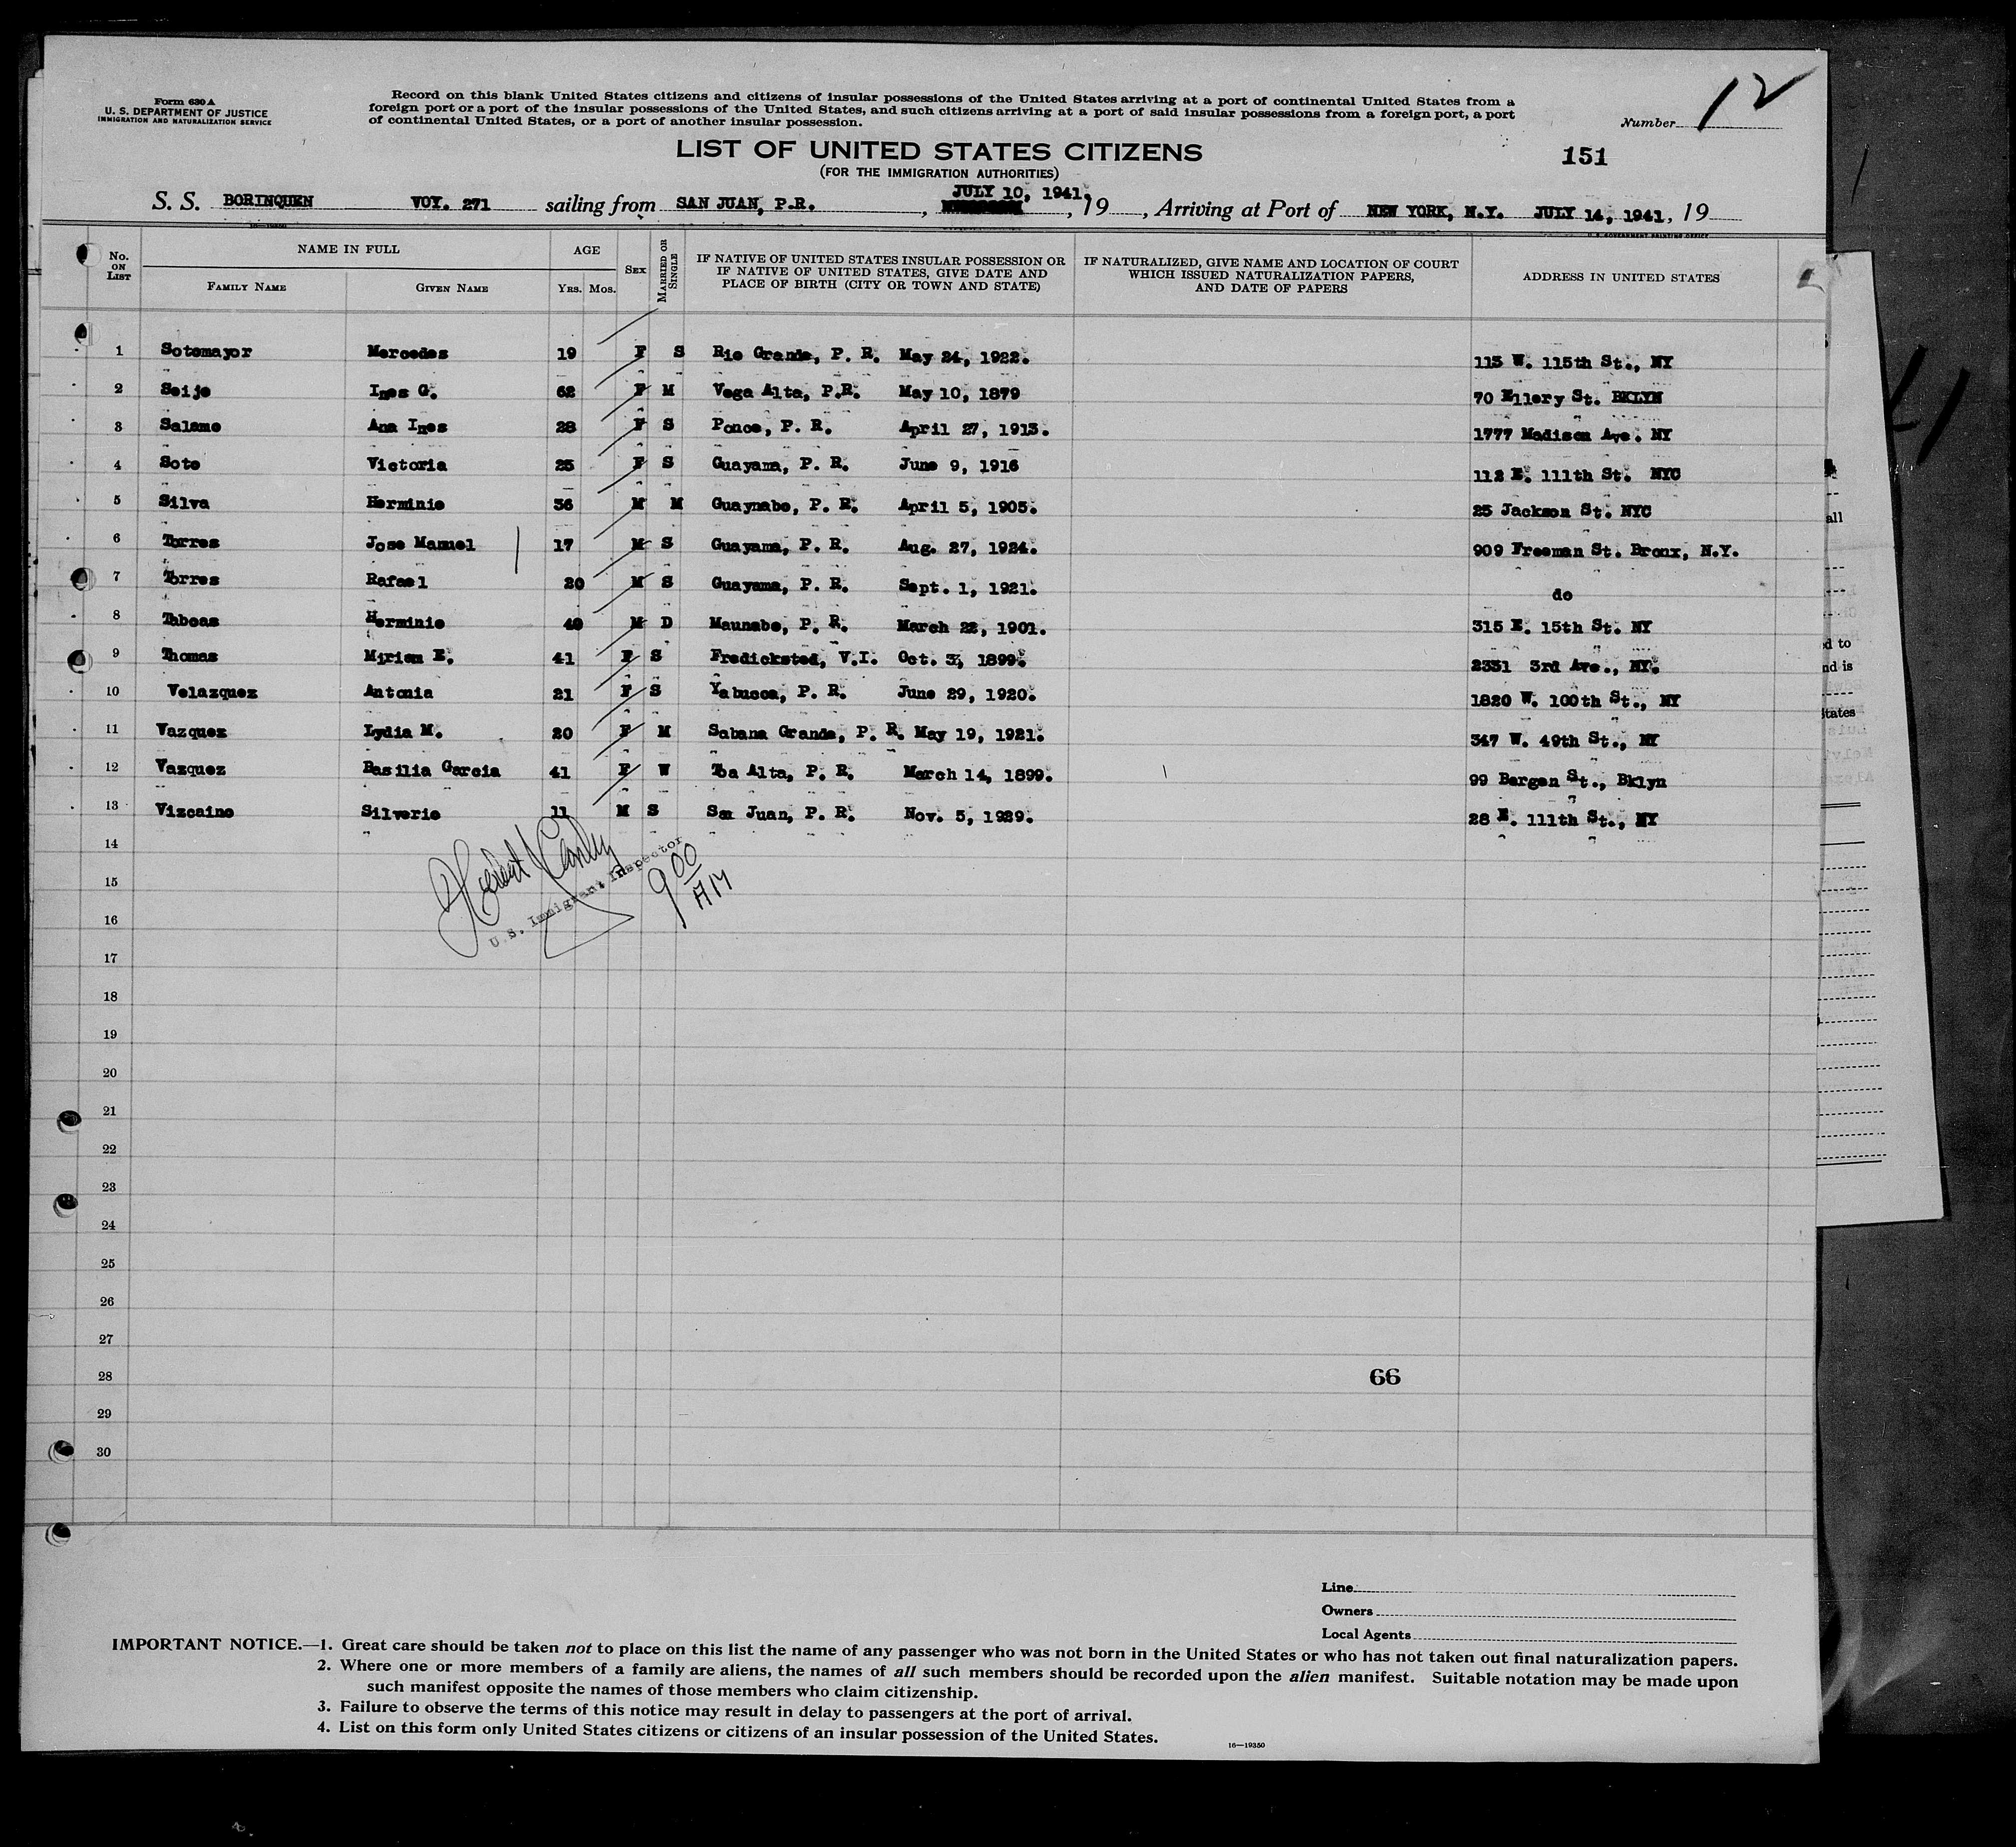 Form 630 A
U. S. DEPARTMENT OF JUSTICE
IMMIGRATION AND NATURALIZATION SERVICE
Record on this blank United States citizens and citizens of insular possessions of the United States arriving at a port of continental United States from a
foreign port or a port of the insular possessions of the United States, and such citizens arriving at a port of said insular possessions from a foreign port, a port
of continental United States, or a port of another insular possession.
Number 12
LIST OF UNITED STATES CITIZENS
151
(FOR THE IMMIGRATION AUTHORITIES)
S. S. BORINQUEN VOY. 271 sailing from SAN JUAN, P.R. , JULY 10, 1941, , 19 , Arriving at Port of NEW YORK, N.Y. JULY 14, 1941, 19
No. ON LIST
NAME IN FULL
FAMILY NAME
GIVEN NAME
AGE
YRS. MOS.
SEX
MARRIED OR SINGLE
IF NATIVE OF UNITED STATES INSULAR POSSESSION OR
IF NATIVE OF UNITED STATES, GIVE DATE AND
PLACE OF BIRTH (CITY OR TOWN AND STATE)
IF NATURALIZED, GIVE NAME AND LOCATION OF COURT
WHICH ISSUED NATURALIZATION PAPERS,
AND DATE OF PAPERS
ADDRESS IN UNITED STATES
1 Sotomayor Mercedes 19 F S Rio Grande, P. R. May 24, 1922. 113 W. 115th St., NY
2 Seijo Ines G. 62 F M Vega Alta, P.R. May 10, 1879 70 Ellery St. BKLYN
3 Salamo Ana Ines 28 F S Ponce, P. R. April 27, 1913. 1777 Madison Ave. NY
4 Soto Victoria 25 F S Guayama, P. R. June 9, 1916 112 E. 111th St. NYC
5 Silva Herminio 36 M M Guaynabo, P. R. April 5, 1905. 25 Jackson St. NYC
6 Torres Jose Manuel 17 M S Guayama, P. R. Aug. 27, 1924. 909 Freeman St. Bronx, N.Y.
7 Torres Rafael 20 M S Guayama, P. R. Sept. 1, 1921. do
8 Taboas Herminio 40 M D Maunabo, P. R. March 22, 1901. 315 E. 15th St. NY
9 Thomas Miriam E. 41 F S Fredicksted, V.I. Oct. 3, 1899. 2331 3rd Ave., NY.
10 Velazquez Antonia 21 F S Yabucoa, P. R. June 29, 1920. 1820 W. 100th St., NY
11 Vazquez Lydia M. 20 F M Sabana Grande, P. R. May 19, 1921. 347 W. 49th St., NY
12 Vazquez Basilia Garcia 41 F W Toa Alta, P. R. March 14, 1899. 99 Bergen St., Bklyn
13 Vizcaino Silverio 11 M S San Juan, P. R. Nov. 5, 1929. 28 E. 111th St., NY
14
15
U.S. Immigrant Inspector
9 00 AM
16
17
18
19
20
21
22
23
24
25
26
27
28 66
29
30
Line
Owners
Local Agents
IMPORTANT NOTICE.—1. Great care should be taken not to place on this list the name of any passenger who was not born in the United States or who has not taken out final naturalization papers.
2. Where one or more members of a family are aliens, the names of all such members should be recorded upon the alien manifest. Suitable notation may be made upon
such manifest opposite the names of those members who claim citizenship.
3. Failure to observe the terms of this notice may result in delay to passengers at the port of arrival.
4. List on this form only United States citizens or citizens of an insular possession of the United States.
16—19350
all
d to
nd is
States